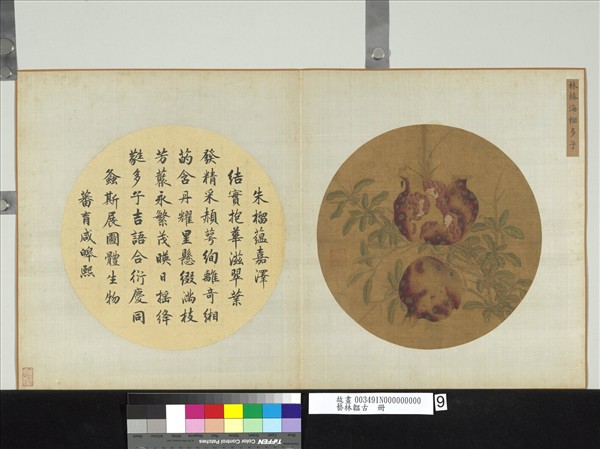 林椿海榴多子
朱榴蘊嘉澤
結實抱華滋翠葉
發精采頳萼絢離奇緗
菂含丹耀星懸綴滿枝
芳蘂永繁茂暎日搖絳
蕤多子吉語合衍慶同
螽斯展圖體生物
蕃育咸皞熙
故畫 003491N000000000
藝林韞古 冊
9
TIFFEN Color Control Patches